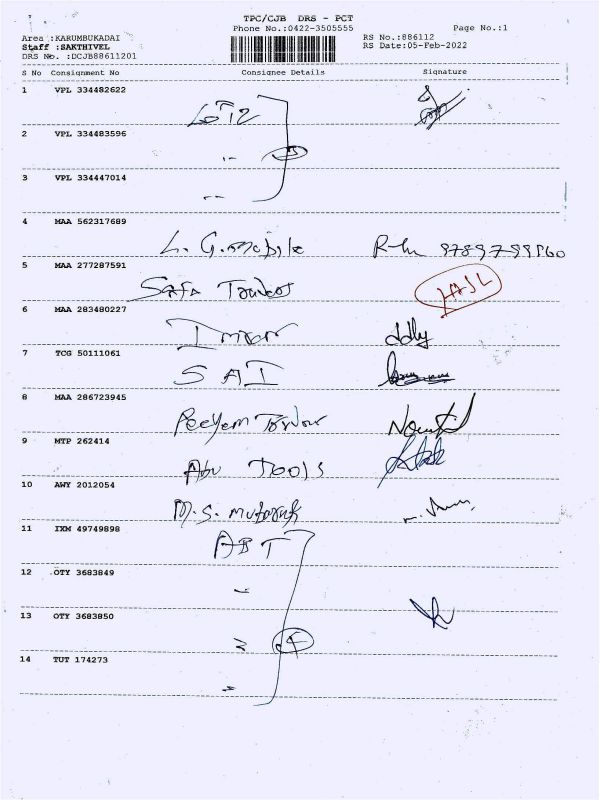 TPC/CJB DRS - PCT
Phone No.:0422-3505555 Page No.:1
Area :KARUMBUKADAI RS No.:886112
Staff :SAKTHIVEL RS Date:05-Feb-2022
DRS No. :DCJB88611201
S No Consignment No Consignee Details Signature
1 VPL 334482622
2 VPL 334483596
3 VPL 334447014
4 MAA 562317689
L. G. mobile
5 MAA 277287591
Safa
6 MAA 283480227
7 TCG 50111061
SAI
8 MAA 286723945
Peeyem
9 MTP 262414
Abu Tools
10 AWY 2012054
M.S.
11 IXM 49749898
ABT
12 OTY 3683849
13 OTY 3683850
4
14 TUT 174273